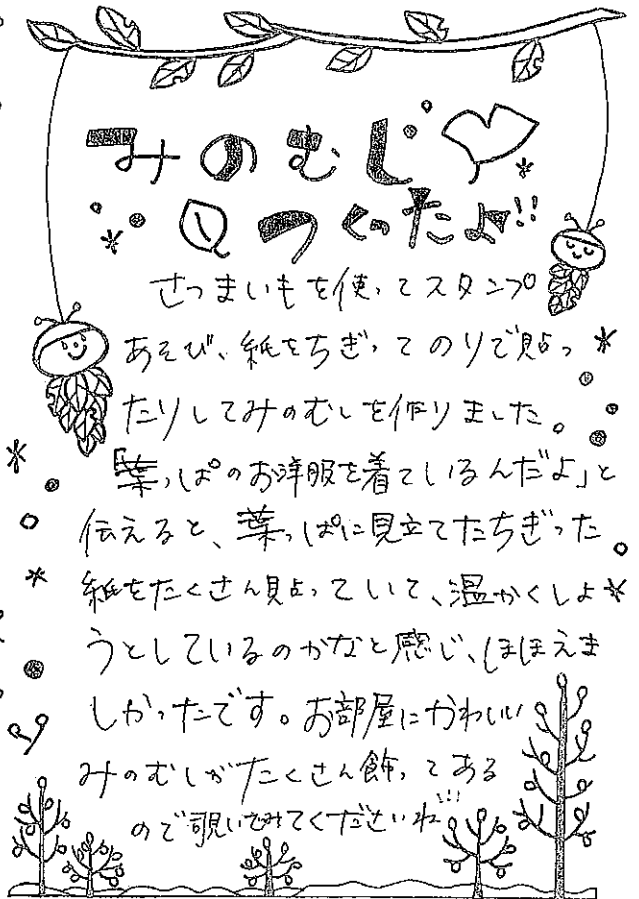 みのむし
つくったよ!!
さつまいもを使ってスタンプ
あそび、紙をちぎってのりで貼っ
たりしてみのむしを作りました。
「葉っぱのお洋服を着ているんだよ」と
伝えると、葉っぱに見立てたちぎった
紙をたくさん貼っていて、温かくしよ
うとしているのかなと感じ、ほほえま
しかったです。お部屋にかわいい
みのむしがたくさん飾ってある
ので覗いてみてくださいね!!!